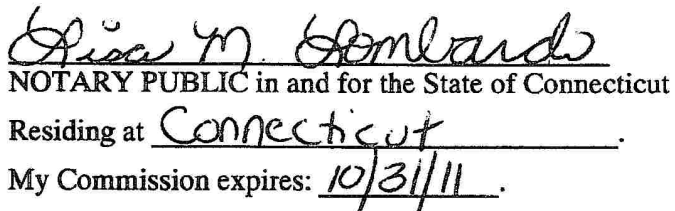 Lisa M. Lombardo
NOTARY PUBLIC in and for the State of Connecticut
Residing at Connecticut.
My Commission expires: 10/31/11.